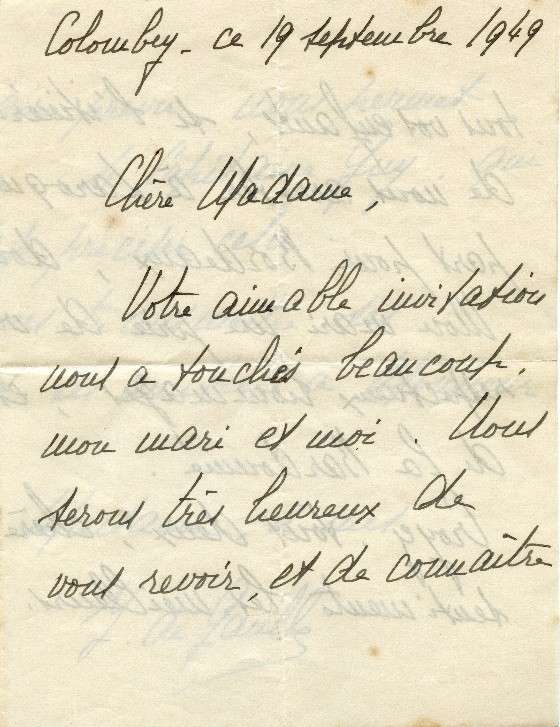 Colombey - ce 19 septembre 1949
Chère Madame,
Votre aimable invitation
nous a touchés beaucoup,
mon mari et moi. Nous
serons très heureux de
vous revoir, et de connaître